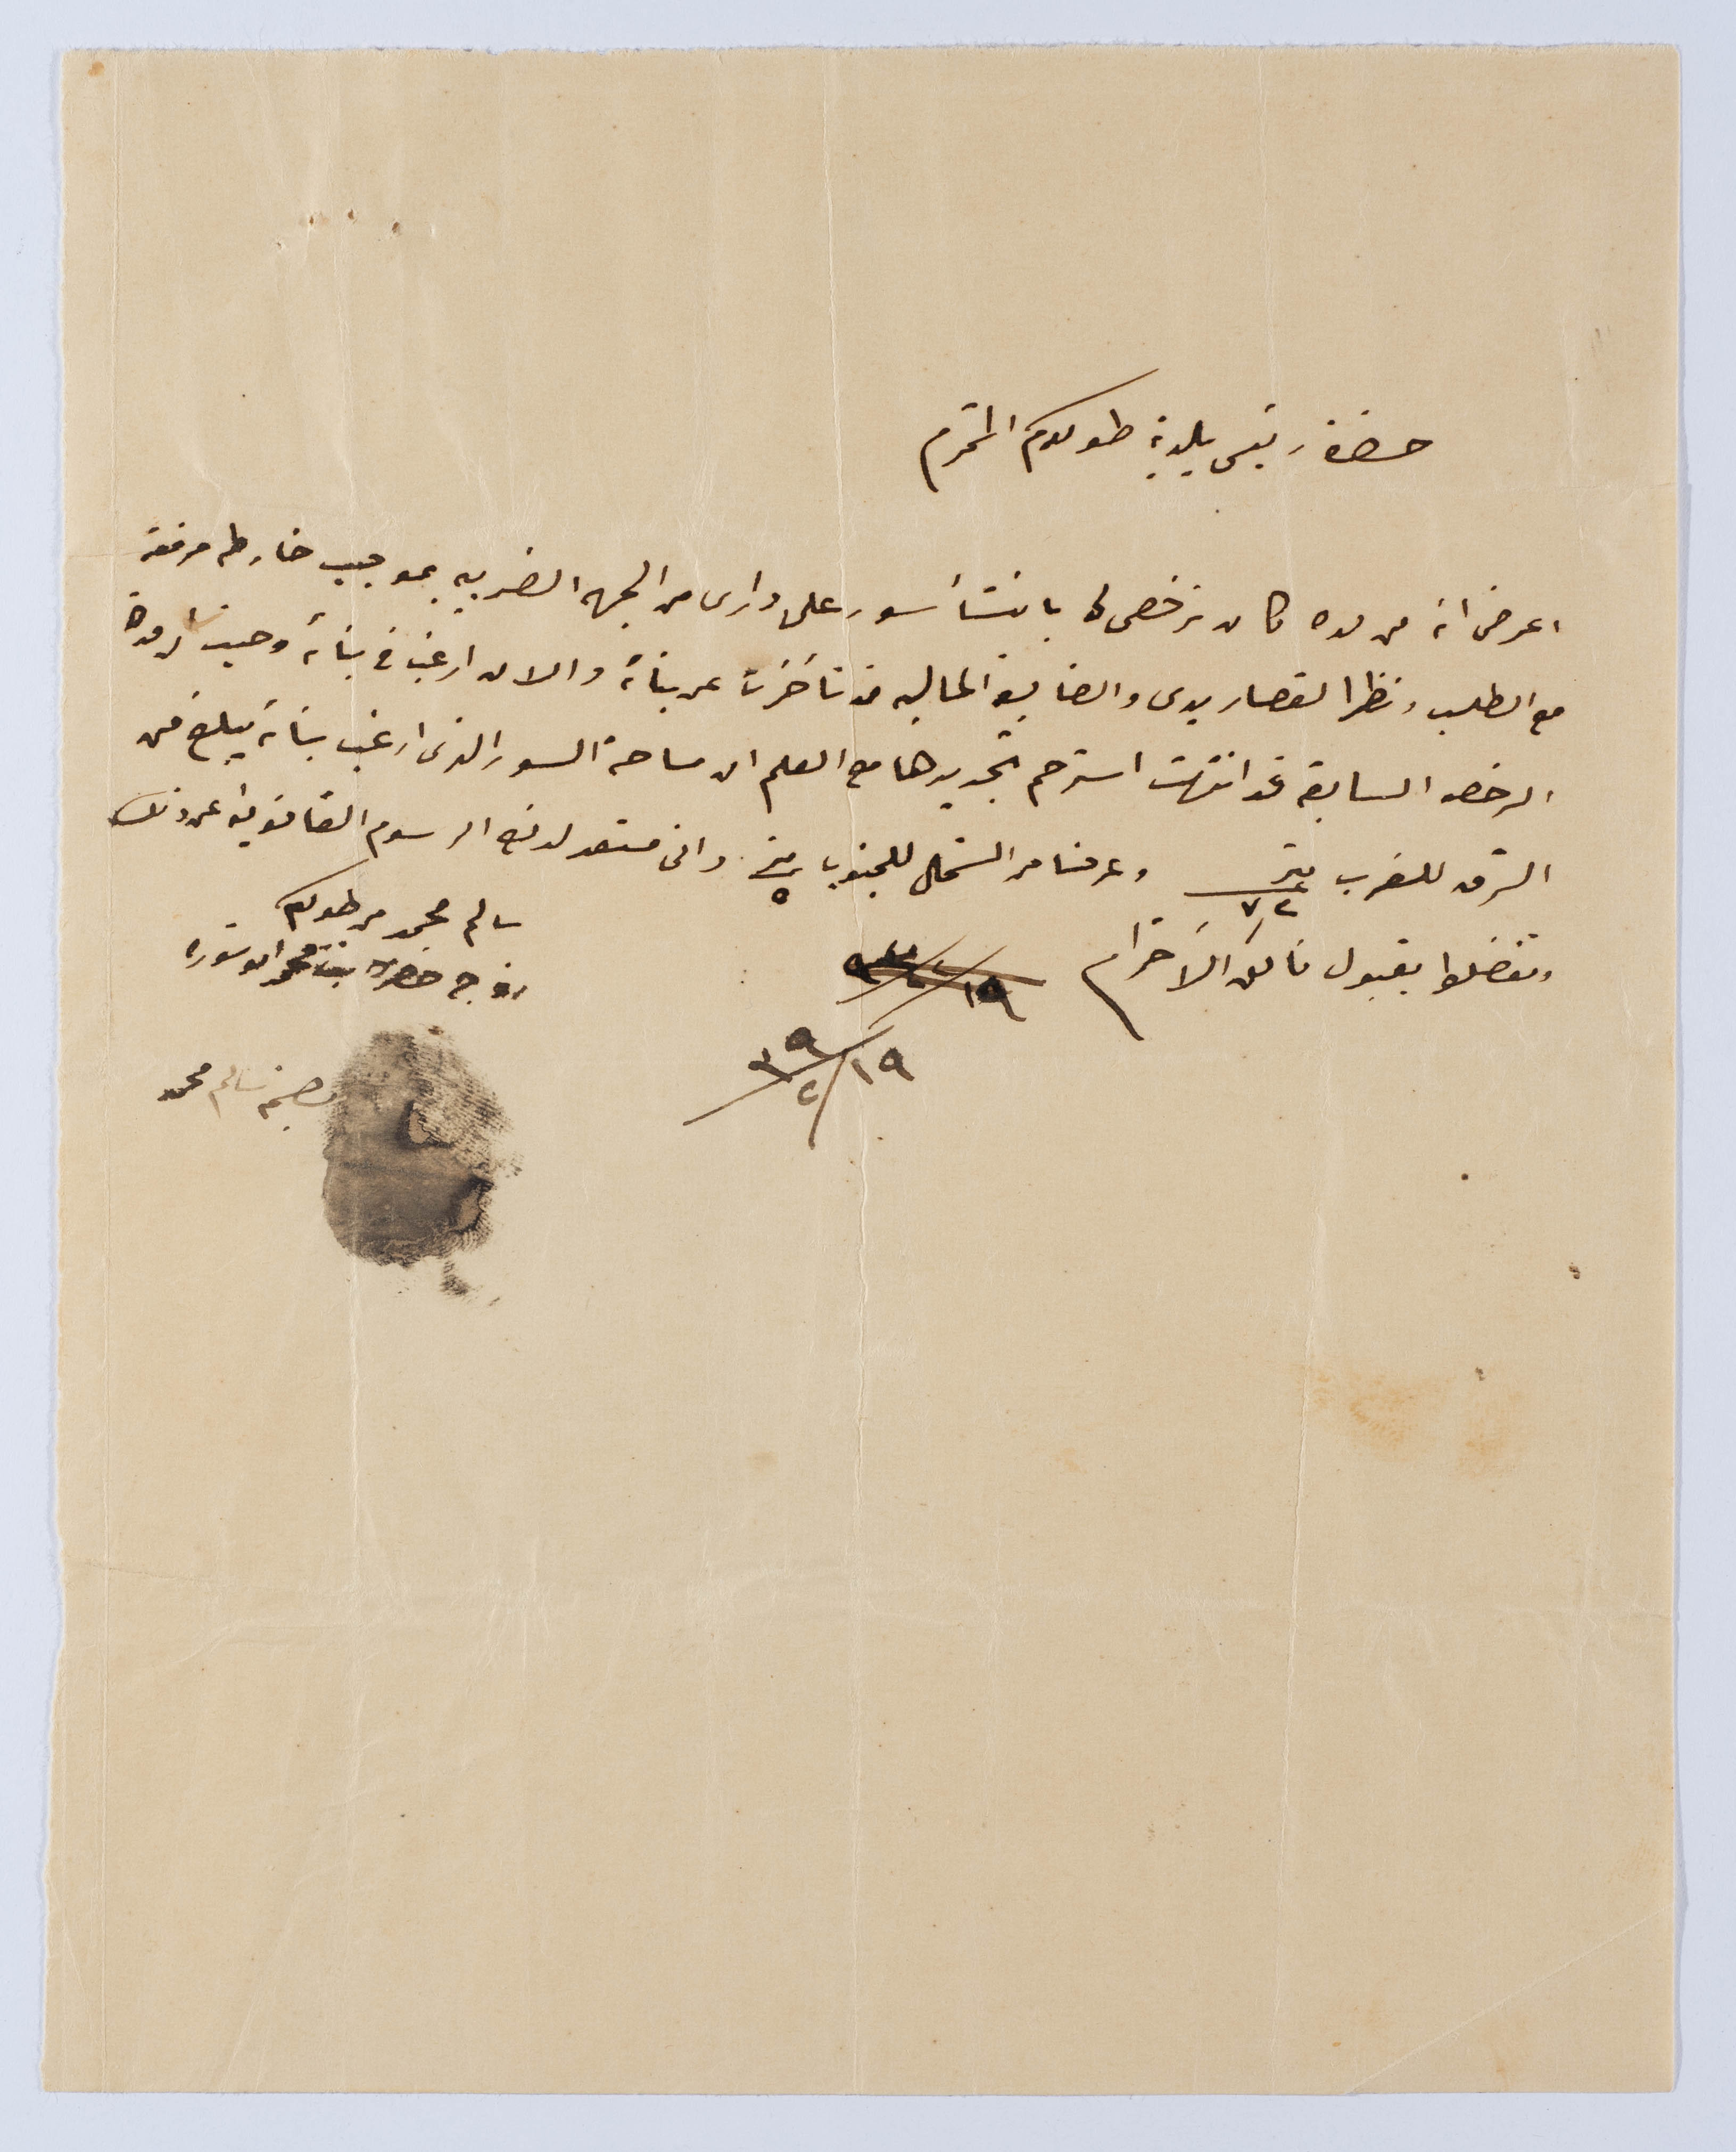 حضرة رئيس بلدية طولكرم المحترم
اعرض انه من مده كان ترخص لي بانشأ سور على داري من الجهه الغربيه بموجب خارطه مرفقه
مع الطلب ونظرا لقصار يدي والضايقة الماليه قد تأخرت عن بنائه والان ارغب في بنائه وحيث ان مدة
الرخصه السابقه قد انتهت استرحم تجديدها مع العلم ان مساحة السور الذي ارغب بنائه يبلغ من
الشرق للغرب متر ٧٢ وعرضا من الشمال للجنوب متر ٥ واني مستعد لدفع الرسوم القانونية عن ذلك
وتفضلوا بقبول فائق الاحترام
سالم محمد من طولكرم
زوج خضره بنت محمد ابو شوره
١٩/٢/٣٩
بصمة سالم محمد